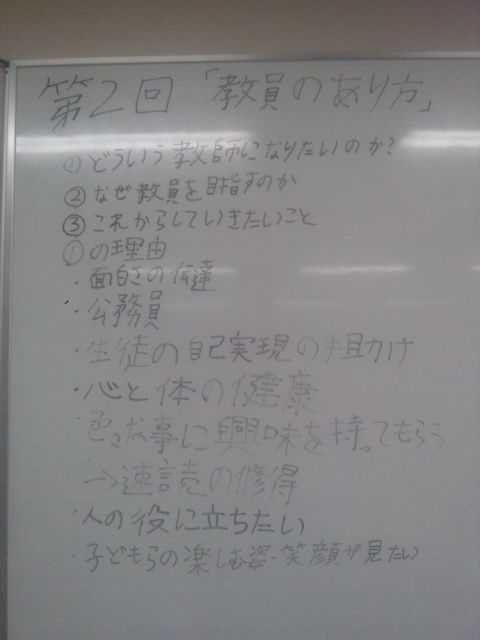 第2回「教員のあり方」
①どういう教師になりたいのか?
②なぜ教員を目指すのか
③これからしていきたいこと
①の理由
・面白さの伝達
・公務員
・生徒の自己実現の手助け
・心と体の健康
・色々な事に興味を持ってもらう
→速読の修得
・人の役に立ちたい
・子どもらの楽しむ姿・笑顔が見たい